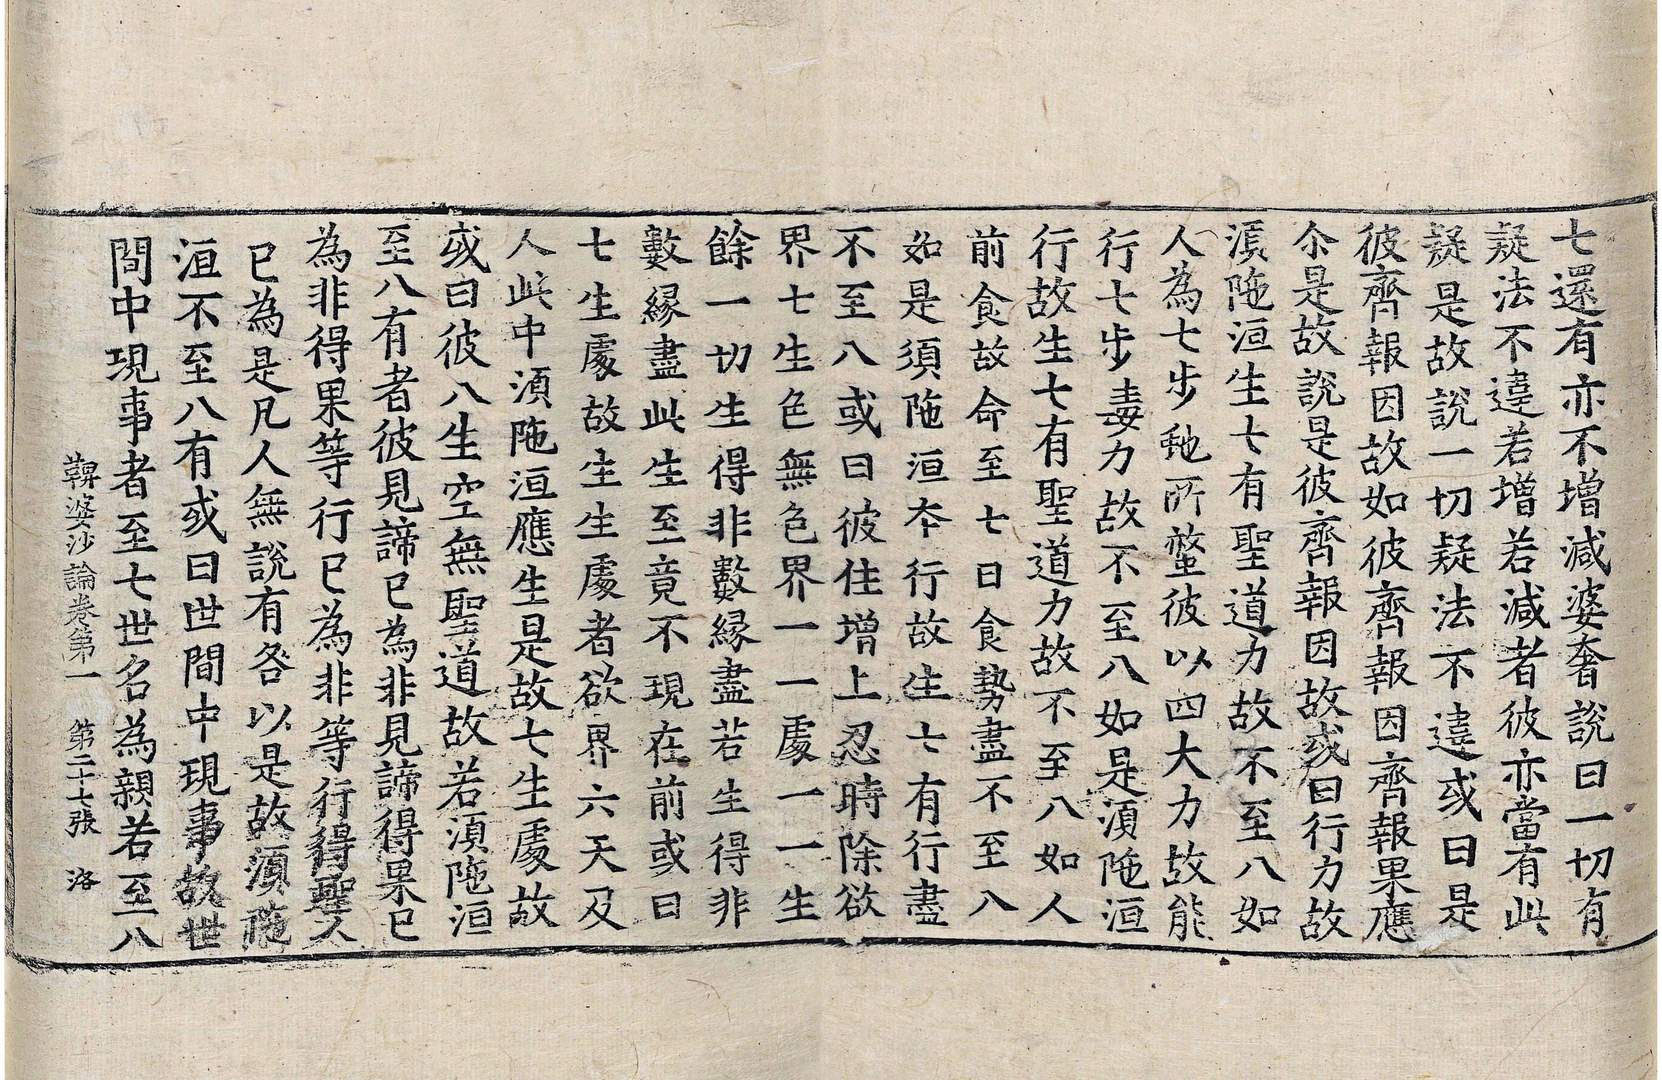 七還有亦不増減婆奢說曰一切有
疑法不違若増若減者彼亦當有此
疑是故說一切疑法不違或曰是
彼齊報因故如彼齊報因齊報果應
尒是故說是彼齊報因故或曰行力故
湏陁洹生七有聖道力故不至八如
人為七步虵所螫彼以四大力故能
行七步毒力故不至八如是湏陁洹
行故生七有聖道力故不至八如人
前食故命至七日食勢盡不至八
如是須陁洹夲行故生七有行盡
不至八或曰彼住増上忍時除欲
界七生色無色界一一處一一生
餘一切生得非數縁盡若生得非
數縁盡此生至竟不現在前或曰
七生處故生生處者欲界六天及
人此中湏陁洹應生是故七生處故
或曰彼八生空無聖道故若湏陁洹
至八有者彼見諦已為非見諦得果已
為非得果等行已為非等行得聖人
已為是凡人無說有咎以是故湏陁
洹不至八有或曰世間中現事故世
間中現事者至七世名為親若至八
鞞婆沙論卷第一 第二十七張 洛